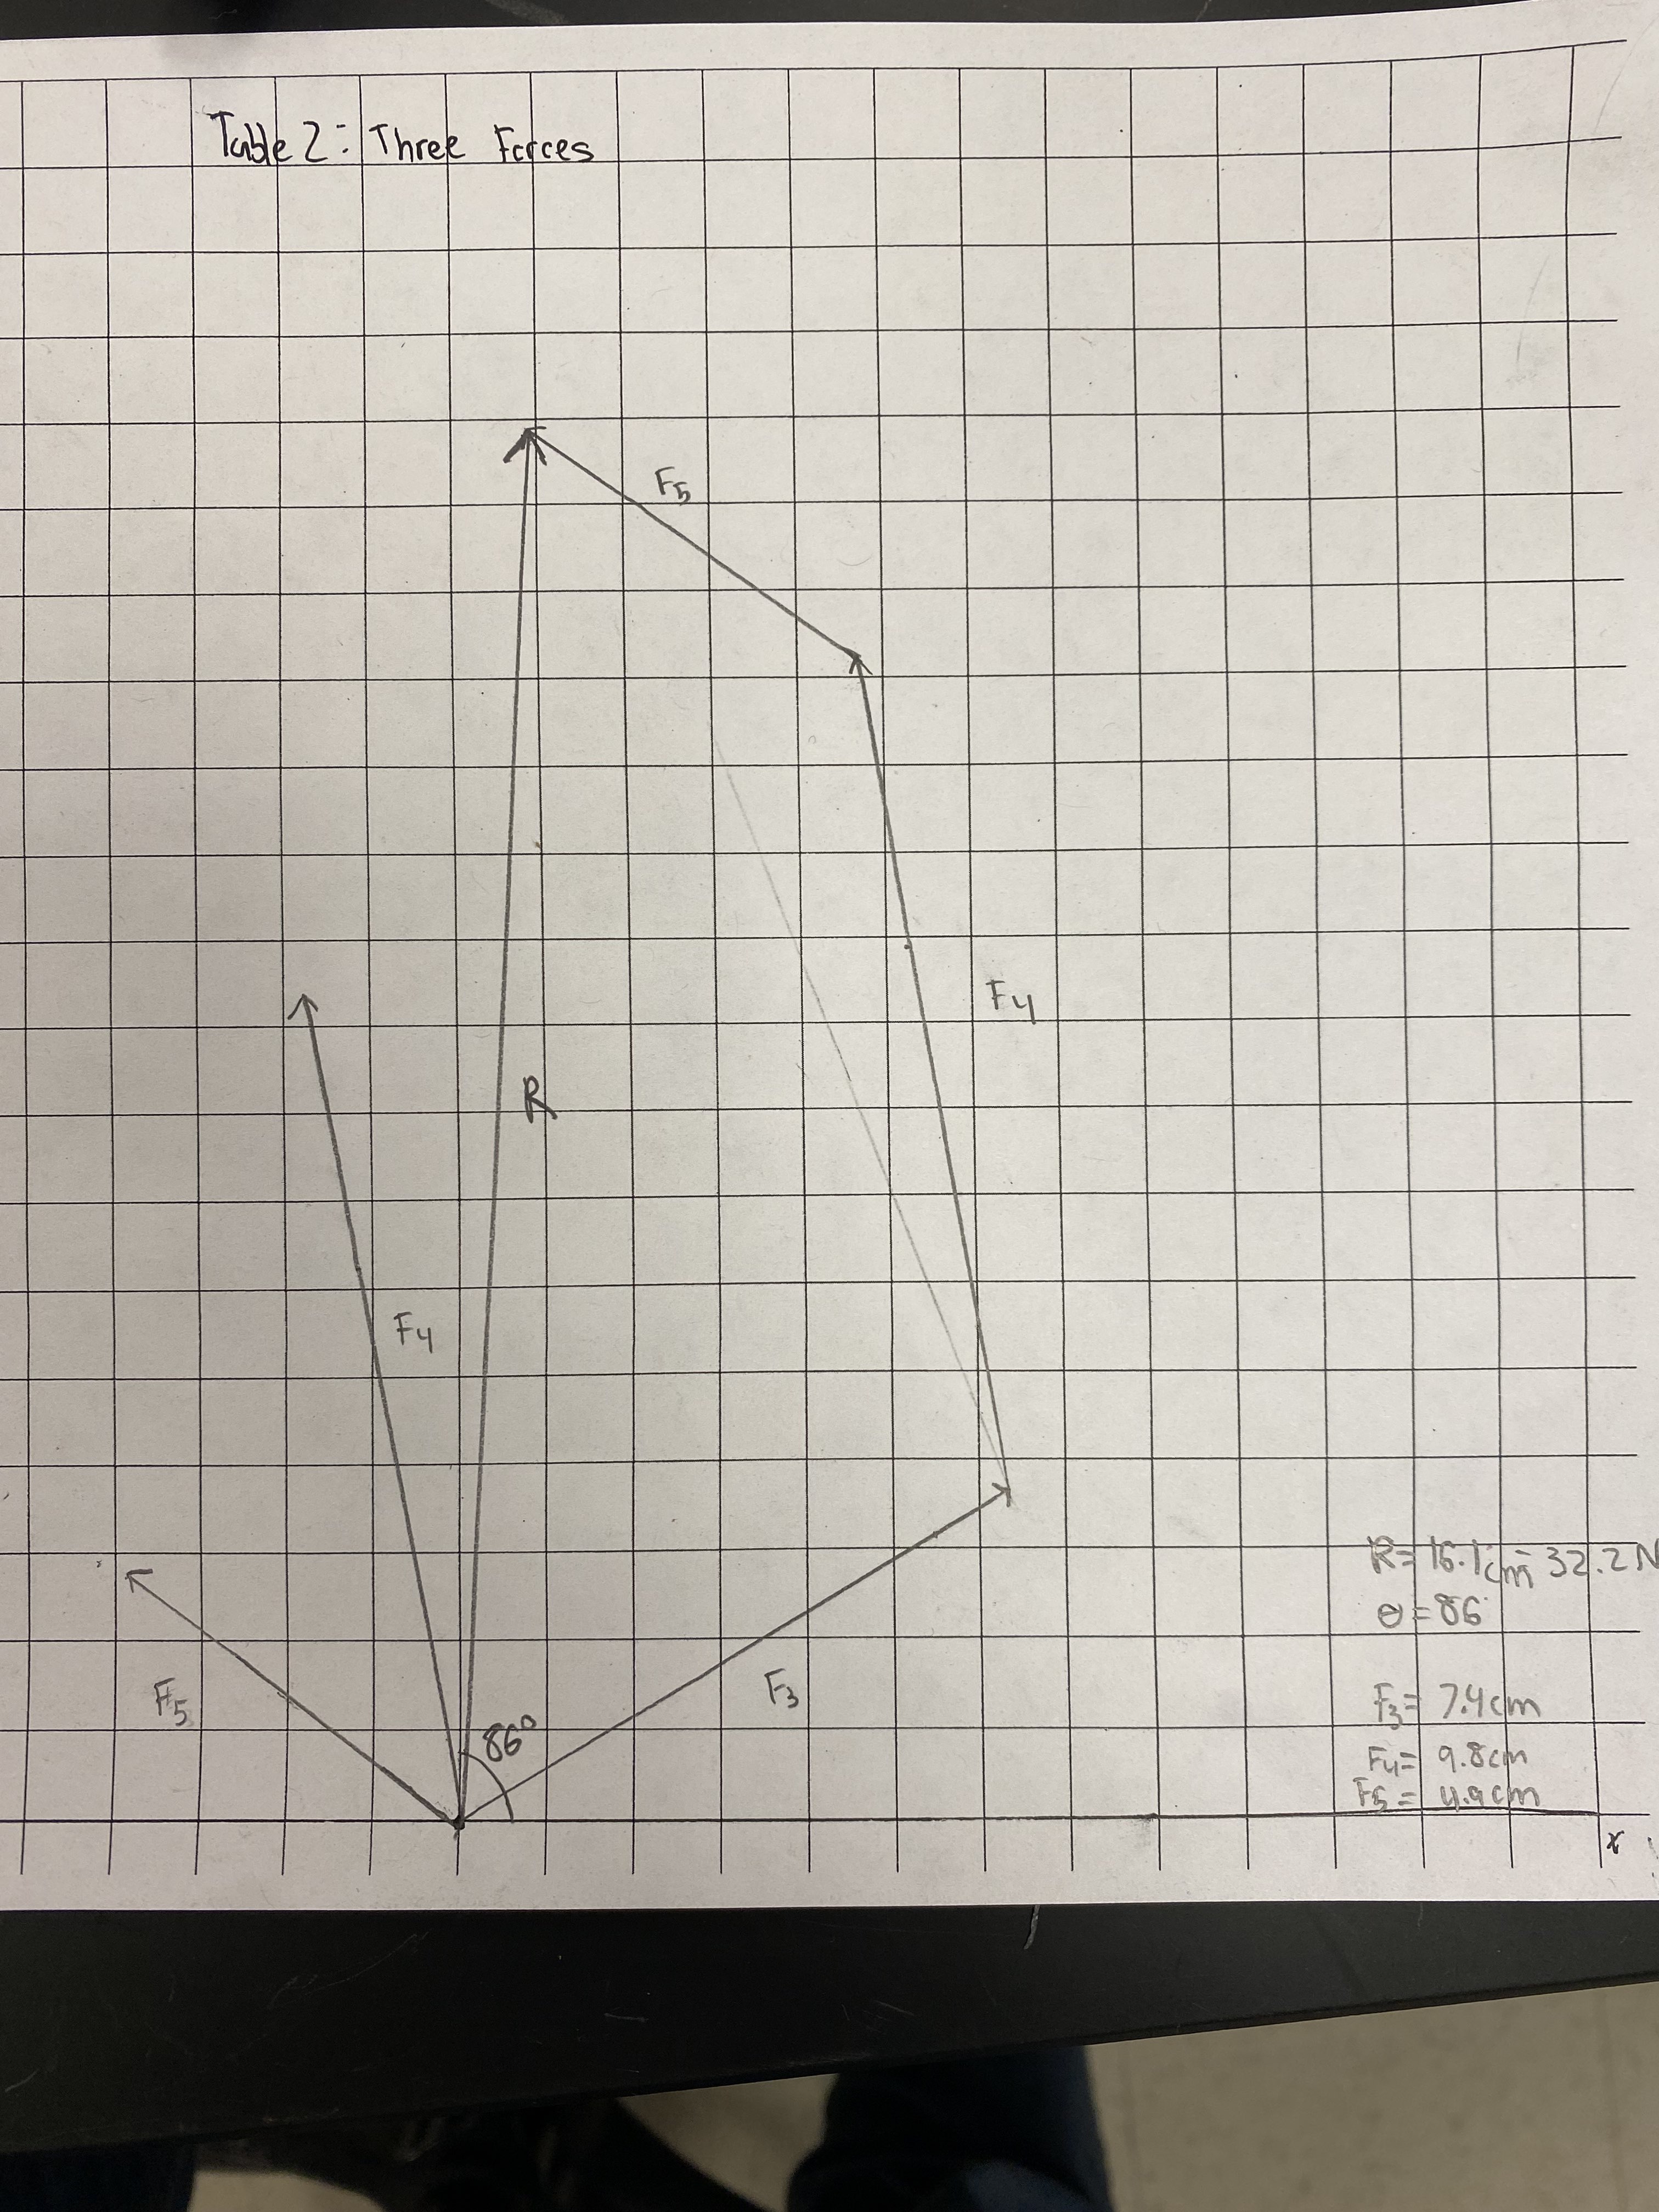 Table 2: Three Forces
F5
F4
R
F4
R= 16.1cm = 32.2N
θ = 86°
F5
F3
F3= 7.4cm
86°
F4= 9.8cm
F5 = 4.9cm
x